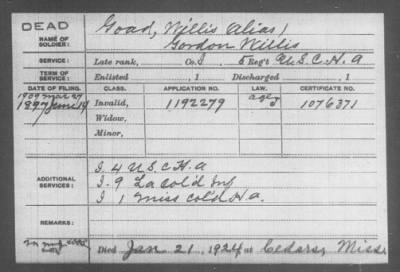 DEAD
NAME OF SOLDIER: Goad, Willis (alias)
Gordon Willis
SERVICE: Late rank, Co. I 5 Reg't U.S.C.H.A
TERM OF SERVICE: Enlisted , 1 Discharged , 1
DATE OF FILING. CLASS. APPLICATION NO. LAW. CERTIFICATE NO.
1897 June 19 Invalid, 1192279 1076371
Widow,
Minor,
ADDITIONAL SERVICES:
I. 4 U.S.C.H.A
I. 9 La cold Inf
I 1 Miss cold H.A.
REMARKS:
Died Jan 21, 1924 at Cedars, Miss